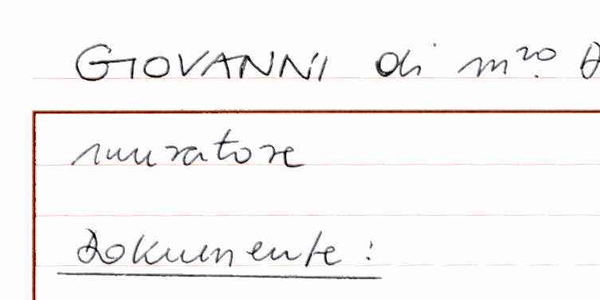 GIOVANNI di mro.
muratore
Dokumente: